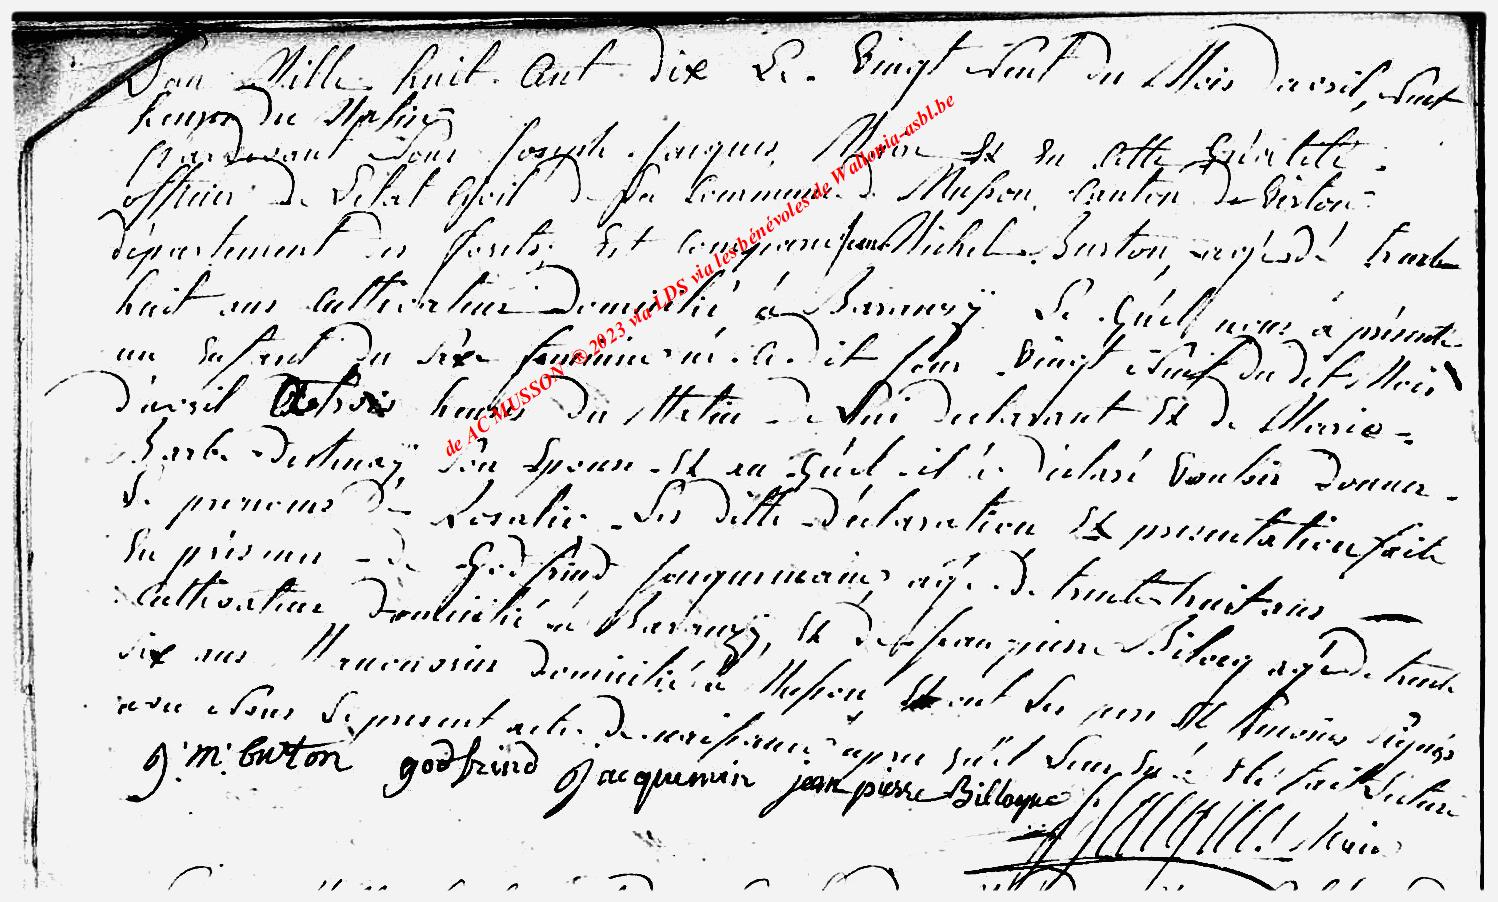 L'an Mille huit Cent dix Le Vingt neuf du Mois d'avril, neuf
heures du Matin
pardevant Nous Joseph Jacques, Maire Et En Cette qualité
officier de L'état Civil de La commune de Musson, Canton de Virton
département des forets, Est comparu jean Michel Burton, agé de trente
huit ans Cultivateur Domicilié à Baranzÿ Le quel nous à présenté
un Enfant du séxe feminin né Cedit jour Vingt neuf du dit Mois
d'avril à trois heures du Matin de Lui declarant Et de Marie
Barbe Son Epouse Et au quel il à déclaré Vouloir donner
Le prenoms de Rosalie Les dittes déclaration Et presentation faite
En présence de Godfrind Jacquemain, agé de trente huit ans
Cultivateur domicilié à Baranzÿ, Et de Jean pierre Billocq agé de trente
six ans Domicilié à Musson Et ont Les pere Et temoins signés
avec Nous Le present acte de naissance apres qu'il Leur En à Eté fait Lecture
j: m: burton godfrind jacquemin jean pierre Billoque
Maire
de AC MUSSON ®2023 via LDS via les bénévoles de Wallonia-asbl.be